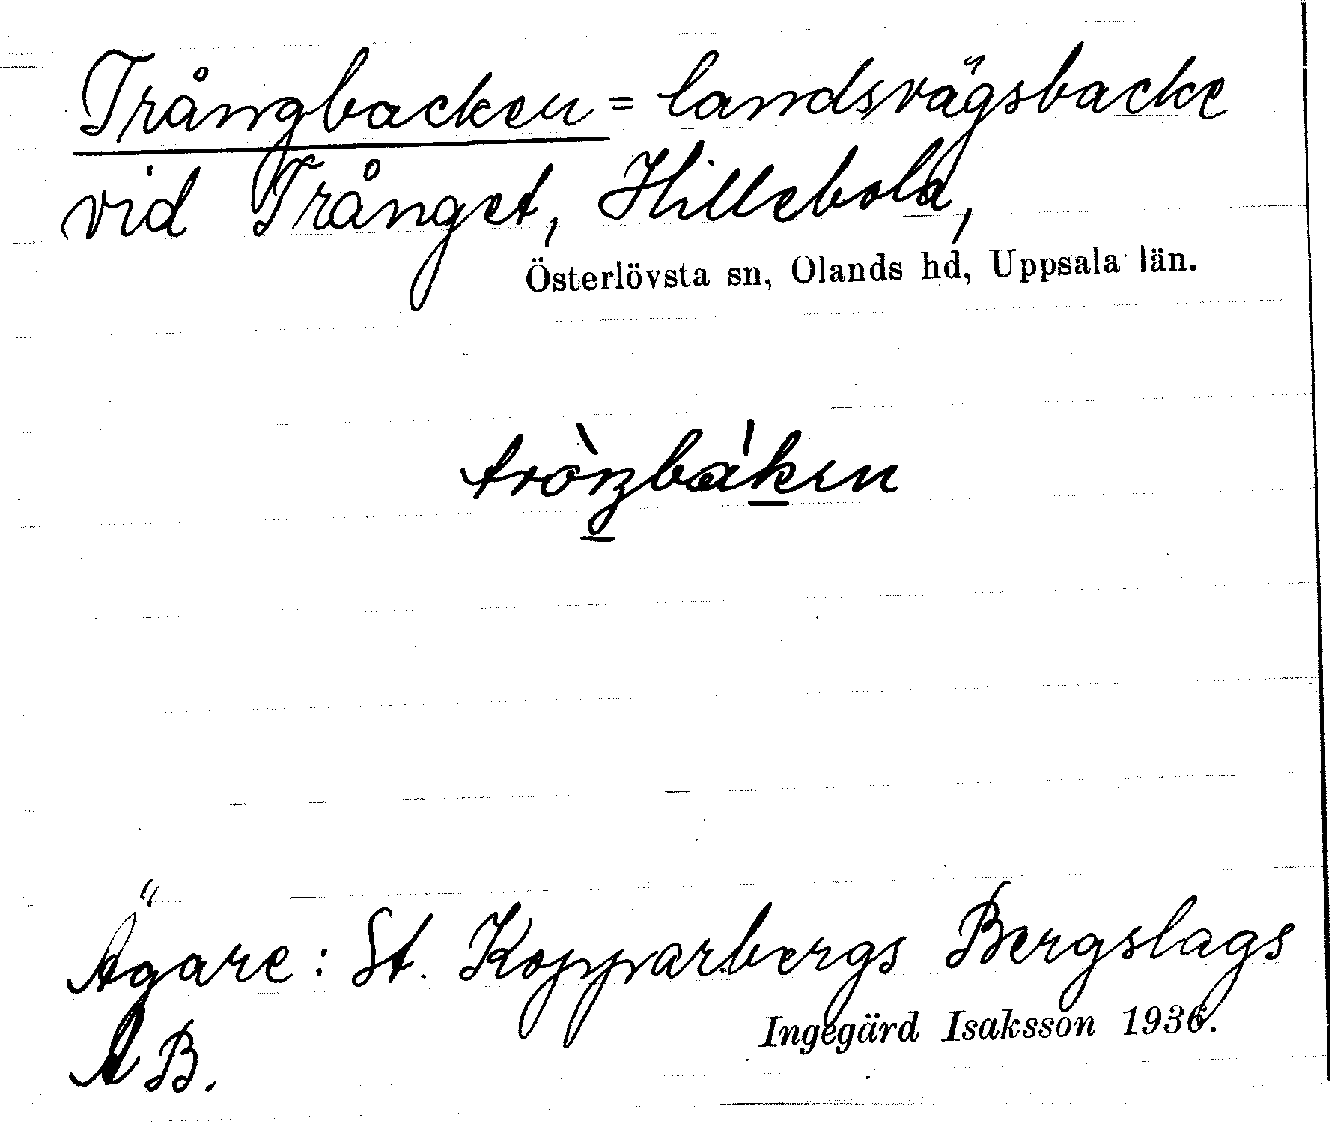 Trångbacken = landsvägsbacke
vid Trånget, Hillebola,
Österlövsta sn, Olands hd, Uppsala län.
tròŋbàken
Ägare: St. Kopparbergs Bergslags
AB.
Ingegärd Isaksson 1936.